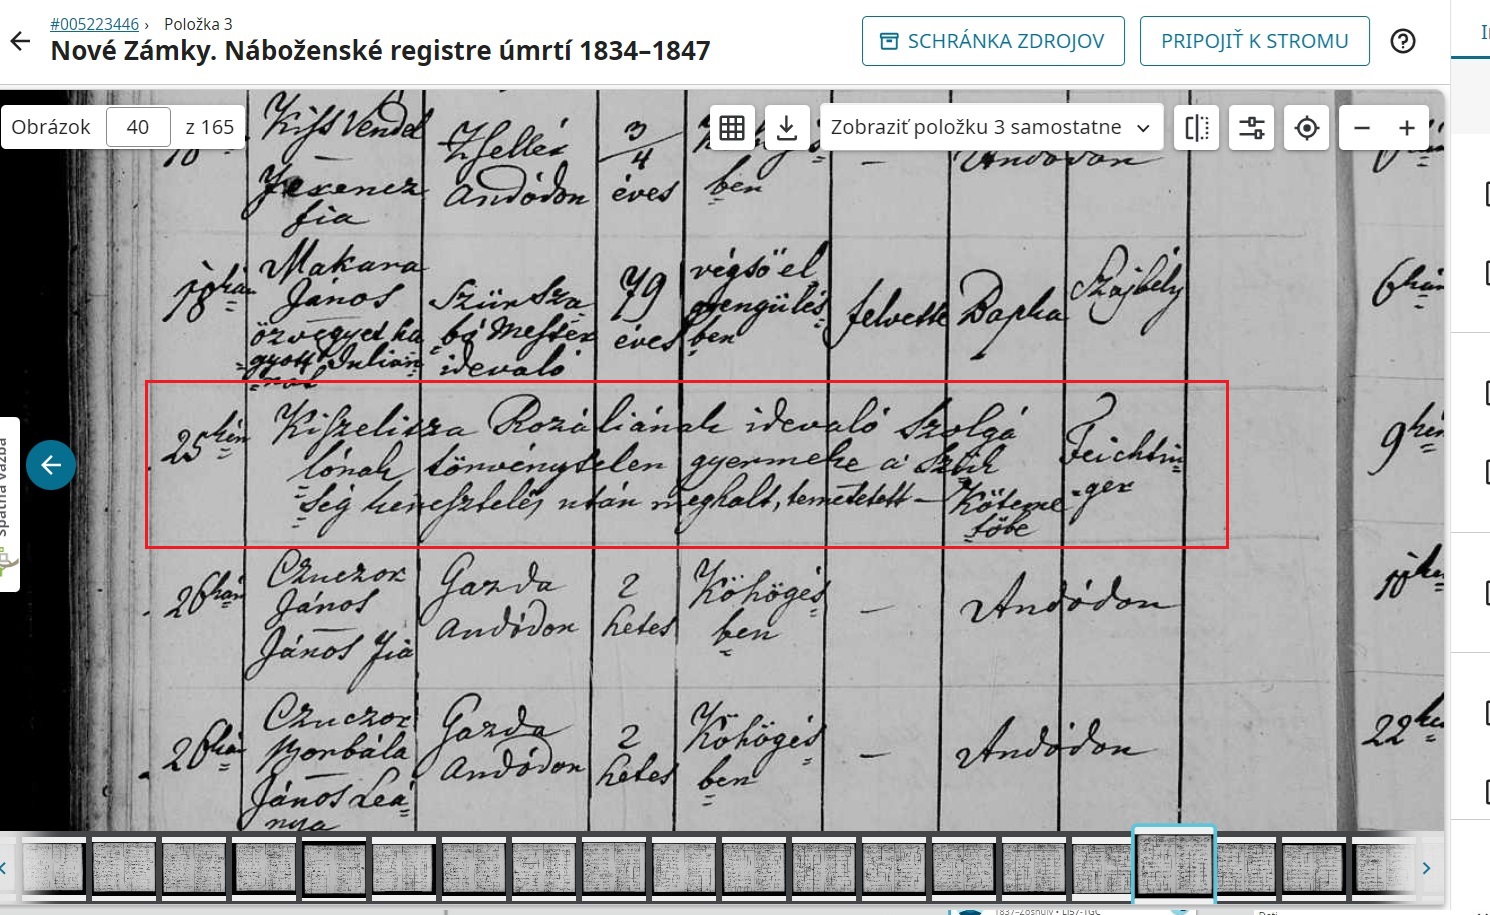 #005223446 › Položka 3
Nové Zámky. Náboženské registre úmrtí 1834–1847
SCHRÁNKA ZDROJOV
PRIPOJIŤ K STROMU
Obrázok 40 z 165
Zobraziť položku 3 samostatne
Kiss Vendel
Ferencz
fia
Zsellér
Andódon
3/4
éves
ben
Andódon
18kán
Makara
János
özvegyet ha
gyott Julian
nát
Szűr Sza
bó Mester
idevaló
79
éves
végső el
gyengülés
ben
felvette
Bapka
Szájbély
6kán
25kén
Kiszelisza Rozáliának idevaló Szolgá
lónak törvénytelen gyermeke a Szük
ség keresztelés után meghalt, temetetett –
Kőteme
tőbe
Feichtin
ger
9kén
26kán
Czuczor
János
János fia
Gazda
Andódon
2
hetes
Köhögés
ben
—
Andódon
26kán
Czuczor
Borbála
János Leá
nya
Gazda
Andódon
2
hetes
Köhögés
ben
—
Andódon
22kén
Spätná väzba